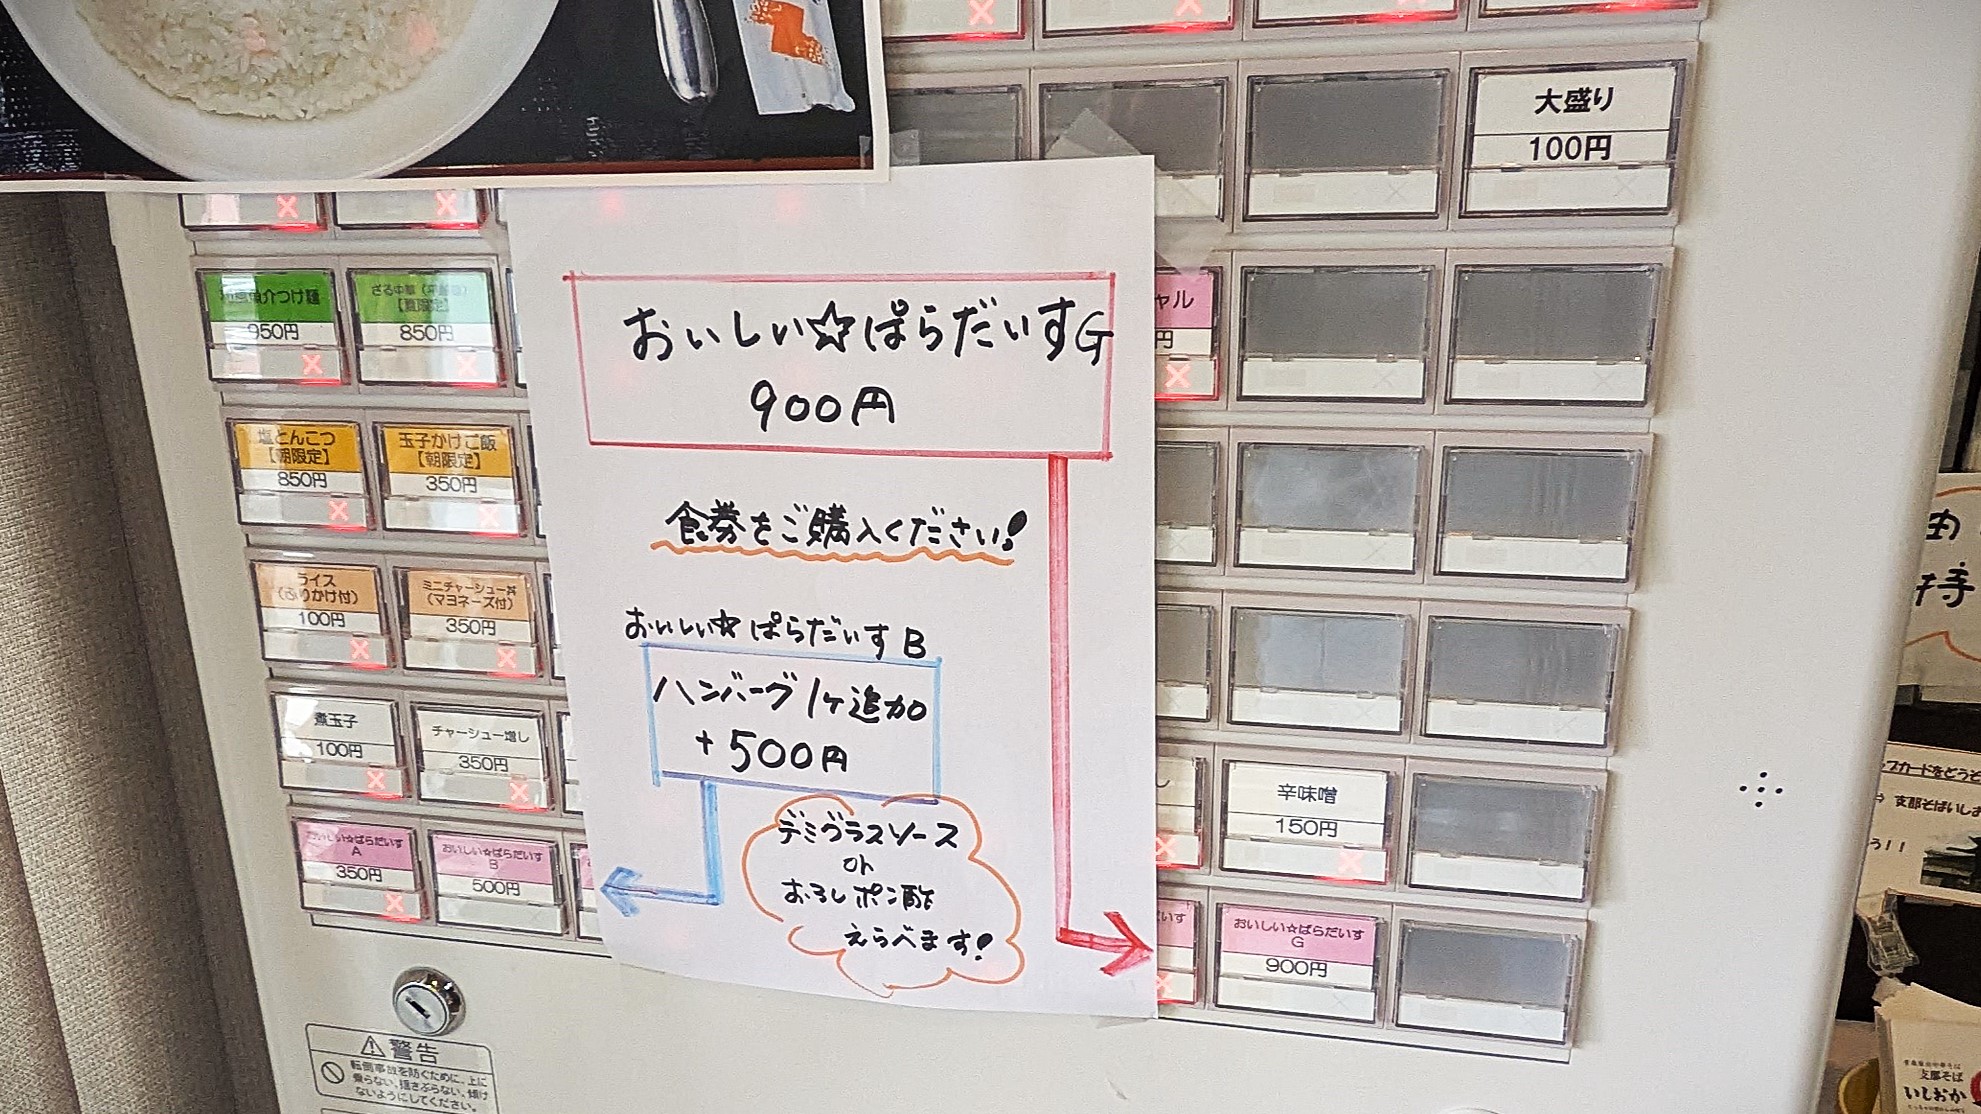 大盛り
100円
950円
ざる中華（
【夏限定】
850円
ャル
円
塩とんこつ
【朝限定】
850円
玉子かけご飯
【朝限定】
350円
ライス
（ふりかけ付）
100円
ミニチャーシュー丼
（マヨネーズ付）
350円
煮玉子
100円
チャーシュー増し
350円
おいしい☆ぱらだいす
A
350円
おいしい☆ぱらだいす
B
500円
おいしい☆ぱらだいすG
900円
食券をご購入ください!
おいしい☆ぱらだいすB
ハンバーグ1ヶ追加
+500円
デミグラスソース
or
おろしポン酢
えらべます!
し
辛味噌
150円
いす
おいしい☆ぱらだいす
G
900円
警告
転倒事故を防ぐために、上に
乗らない、揺さぶらない、傾け
ないようにしてください。
カードをどうぞ
支那そばいしお
う!!
支那そば
いしおか